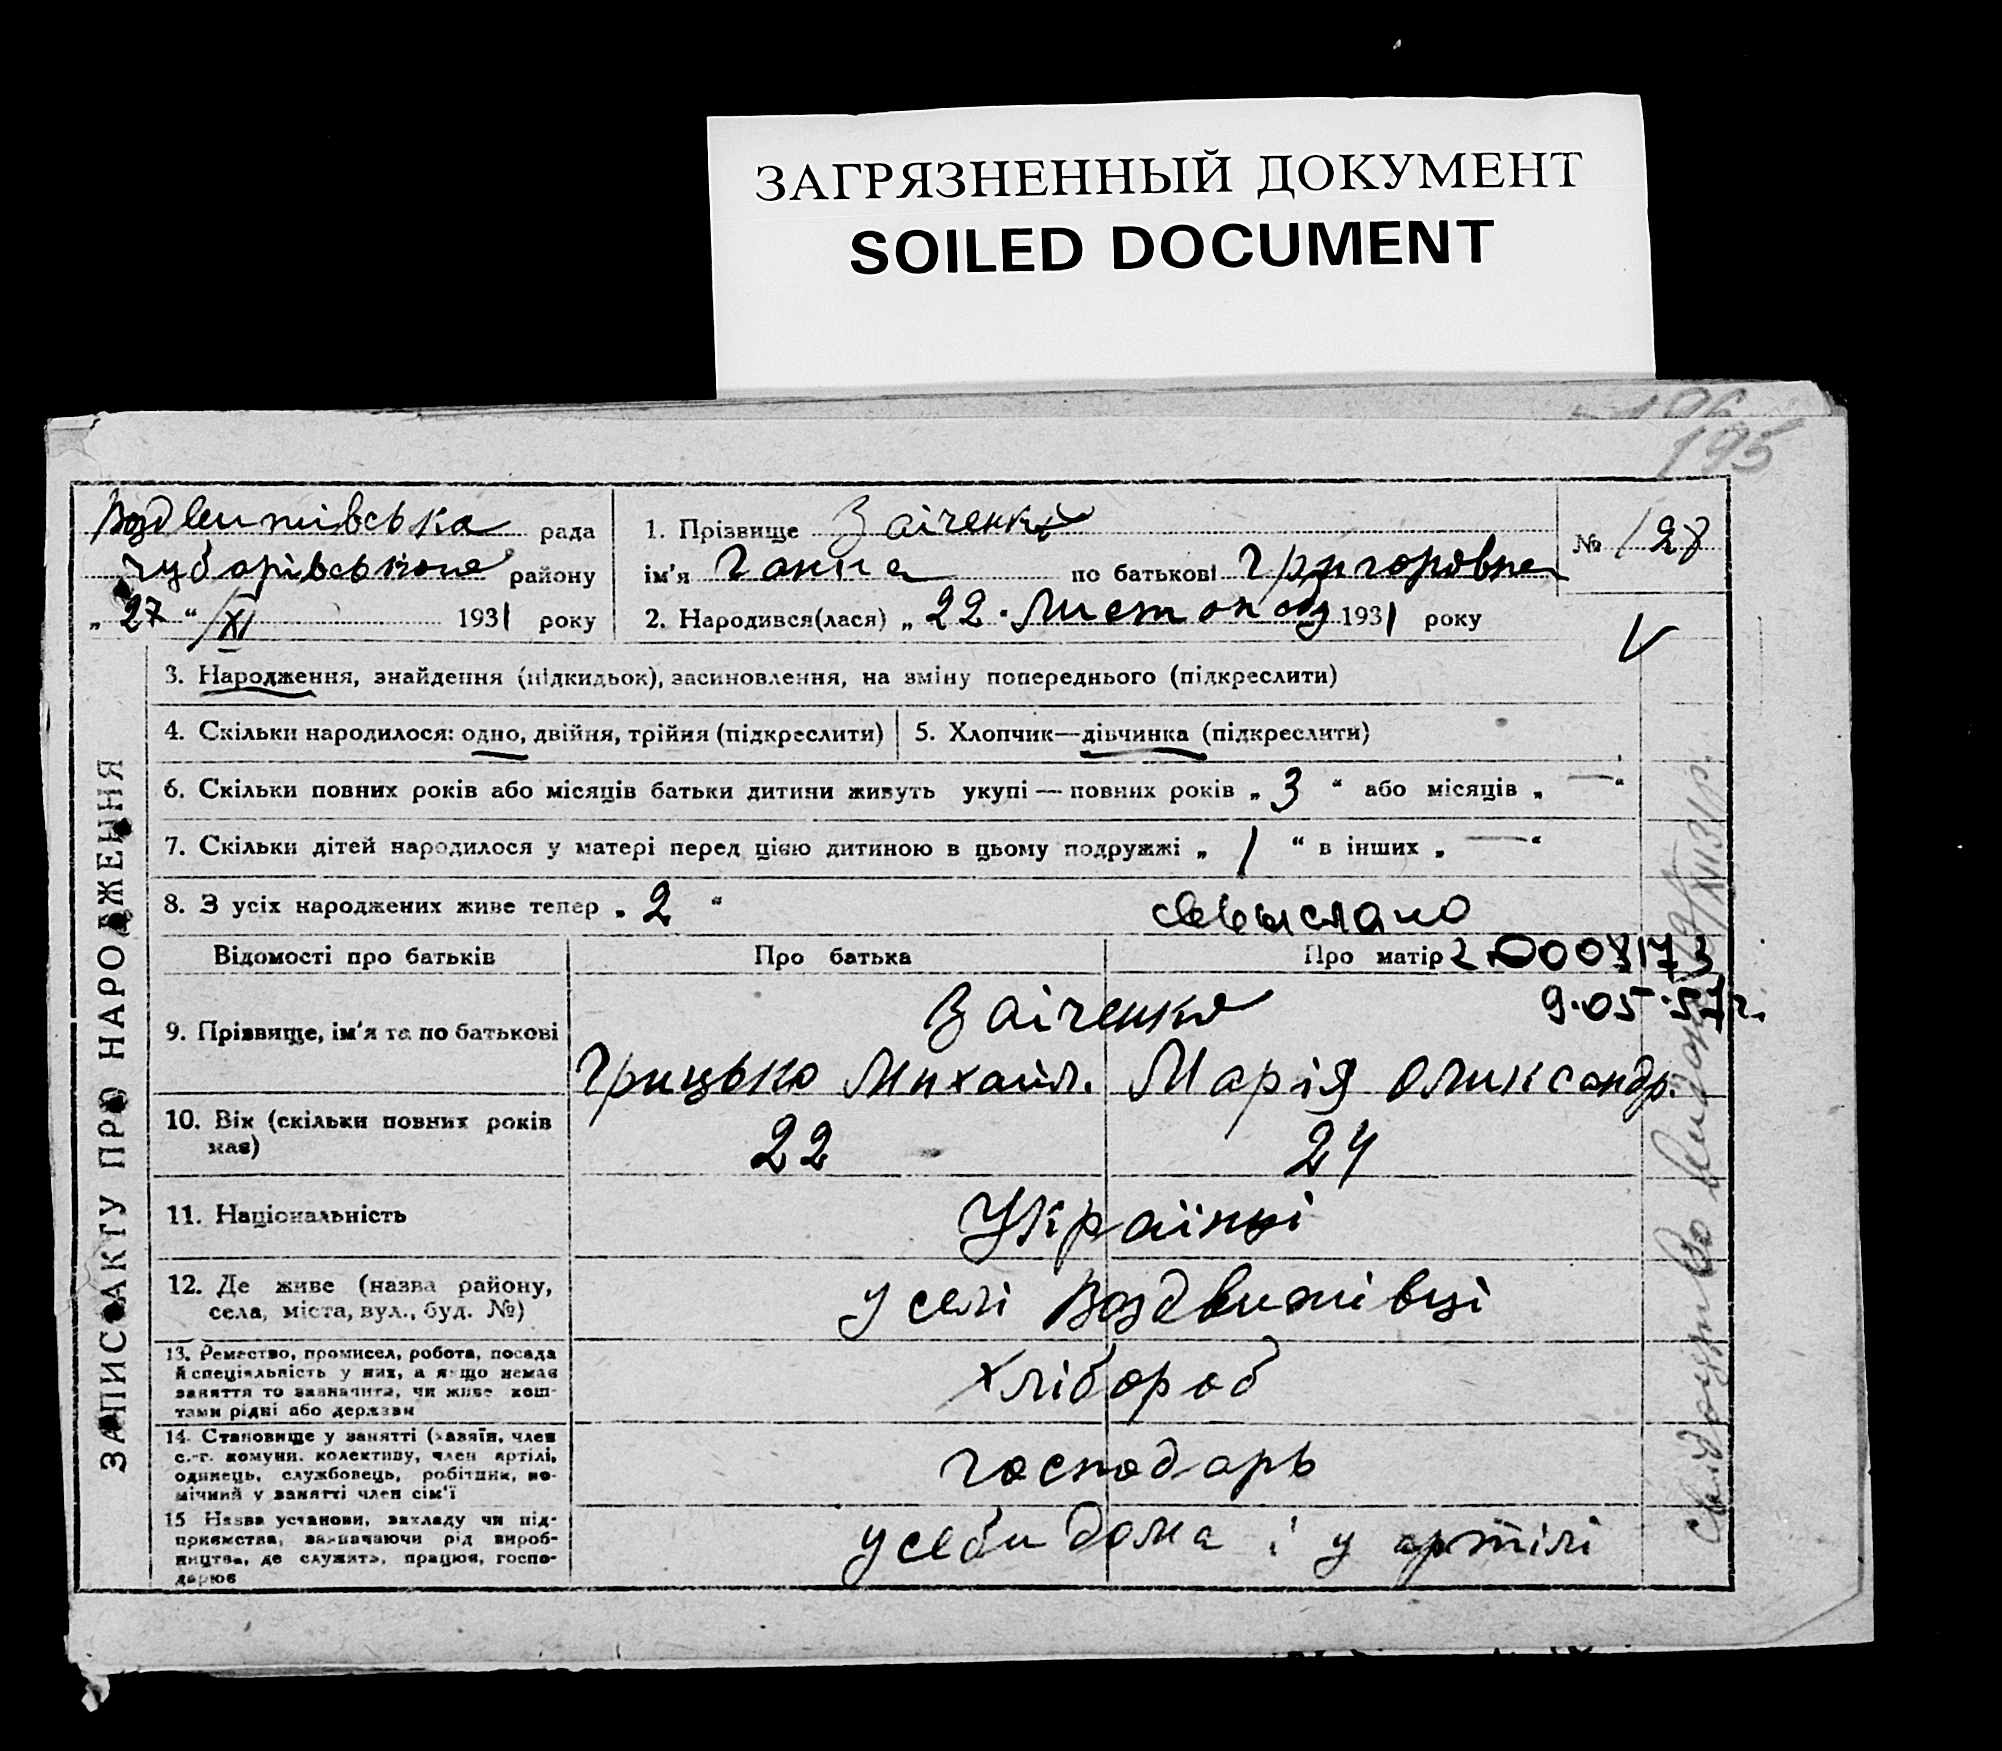 ЗАГРЯЗНЕННЫЙ ДОКУМЕНТ
SOILED DOCUMENT
195
Воздвижівська рада
Чубарівського району
„ 27 “ /XI 1931 року
1. Прізвище Заіченко
ім'я Ганна по батькові Григоровна
2. Народився(лася) „ 22 · Листопад 1931 року
№ 128
V
ЗАПИС АКТУ ПРО НАРОДЖЕННЯ
3. Народження, знайдення (підкидьок), засиновлення, на зміну попереднього (підкреслити)
4. Скільки народилося: одно, двійня, трійня (підкреслити)
5. Хлопчик—дівчинка (підкреслити)
6. Скільки повних років або місяців батьки дитини живуть укупі — повних років „ 3 “ або місяців „ — “
7. Скільки дітей народилося у матері перед цією дитиною в цьому подружжі „ 1 “ в інших „ — “
8. З усіх народжених живе тепер „ 2 “
Відомості про батьків
Про батька
Про матір
9.05.51г.
9. Прізвище, ім'я та по батькові
Заіченко
Грицько Михайл. Марія Оликсандр.
10. Вік (скільки повних років
має)
22
24
11. Національність
Українці
12. Де живе (назва району,
села, міста, вул., буд. №)
у селі Воздвижівці
13. Ремество, промисел, робота, посада
й спеціяльність у них, а якщо немає
заняття то зазначити, чи живе кош-
тами рідні або держави
хлібороб
14. Становище у занятті (хазяїн, член
с.-г. комуни, колективу, член артілі,
одинець, службовець, робітник, по-
мічний у занятті член сім'ї
господарь
15 Назва установи, закладу чи під-
приємства, зазначаючи рід вироб-
ництва, де служить, працює, госпо-
дарює
у себи дома і у артілі
Свідоцтво видано